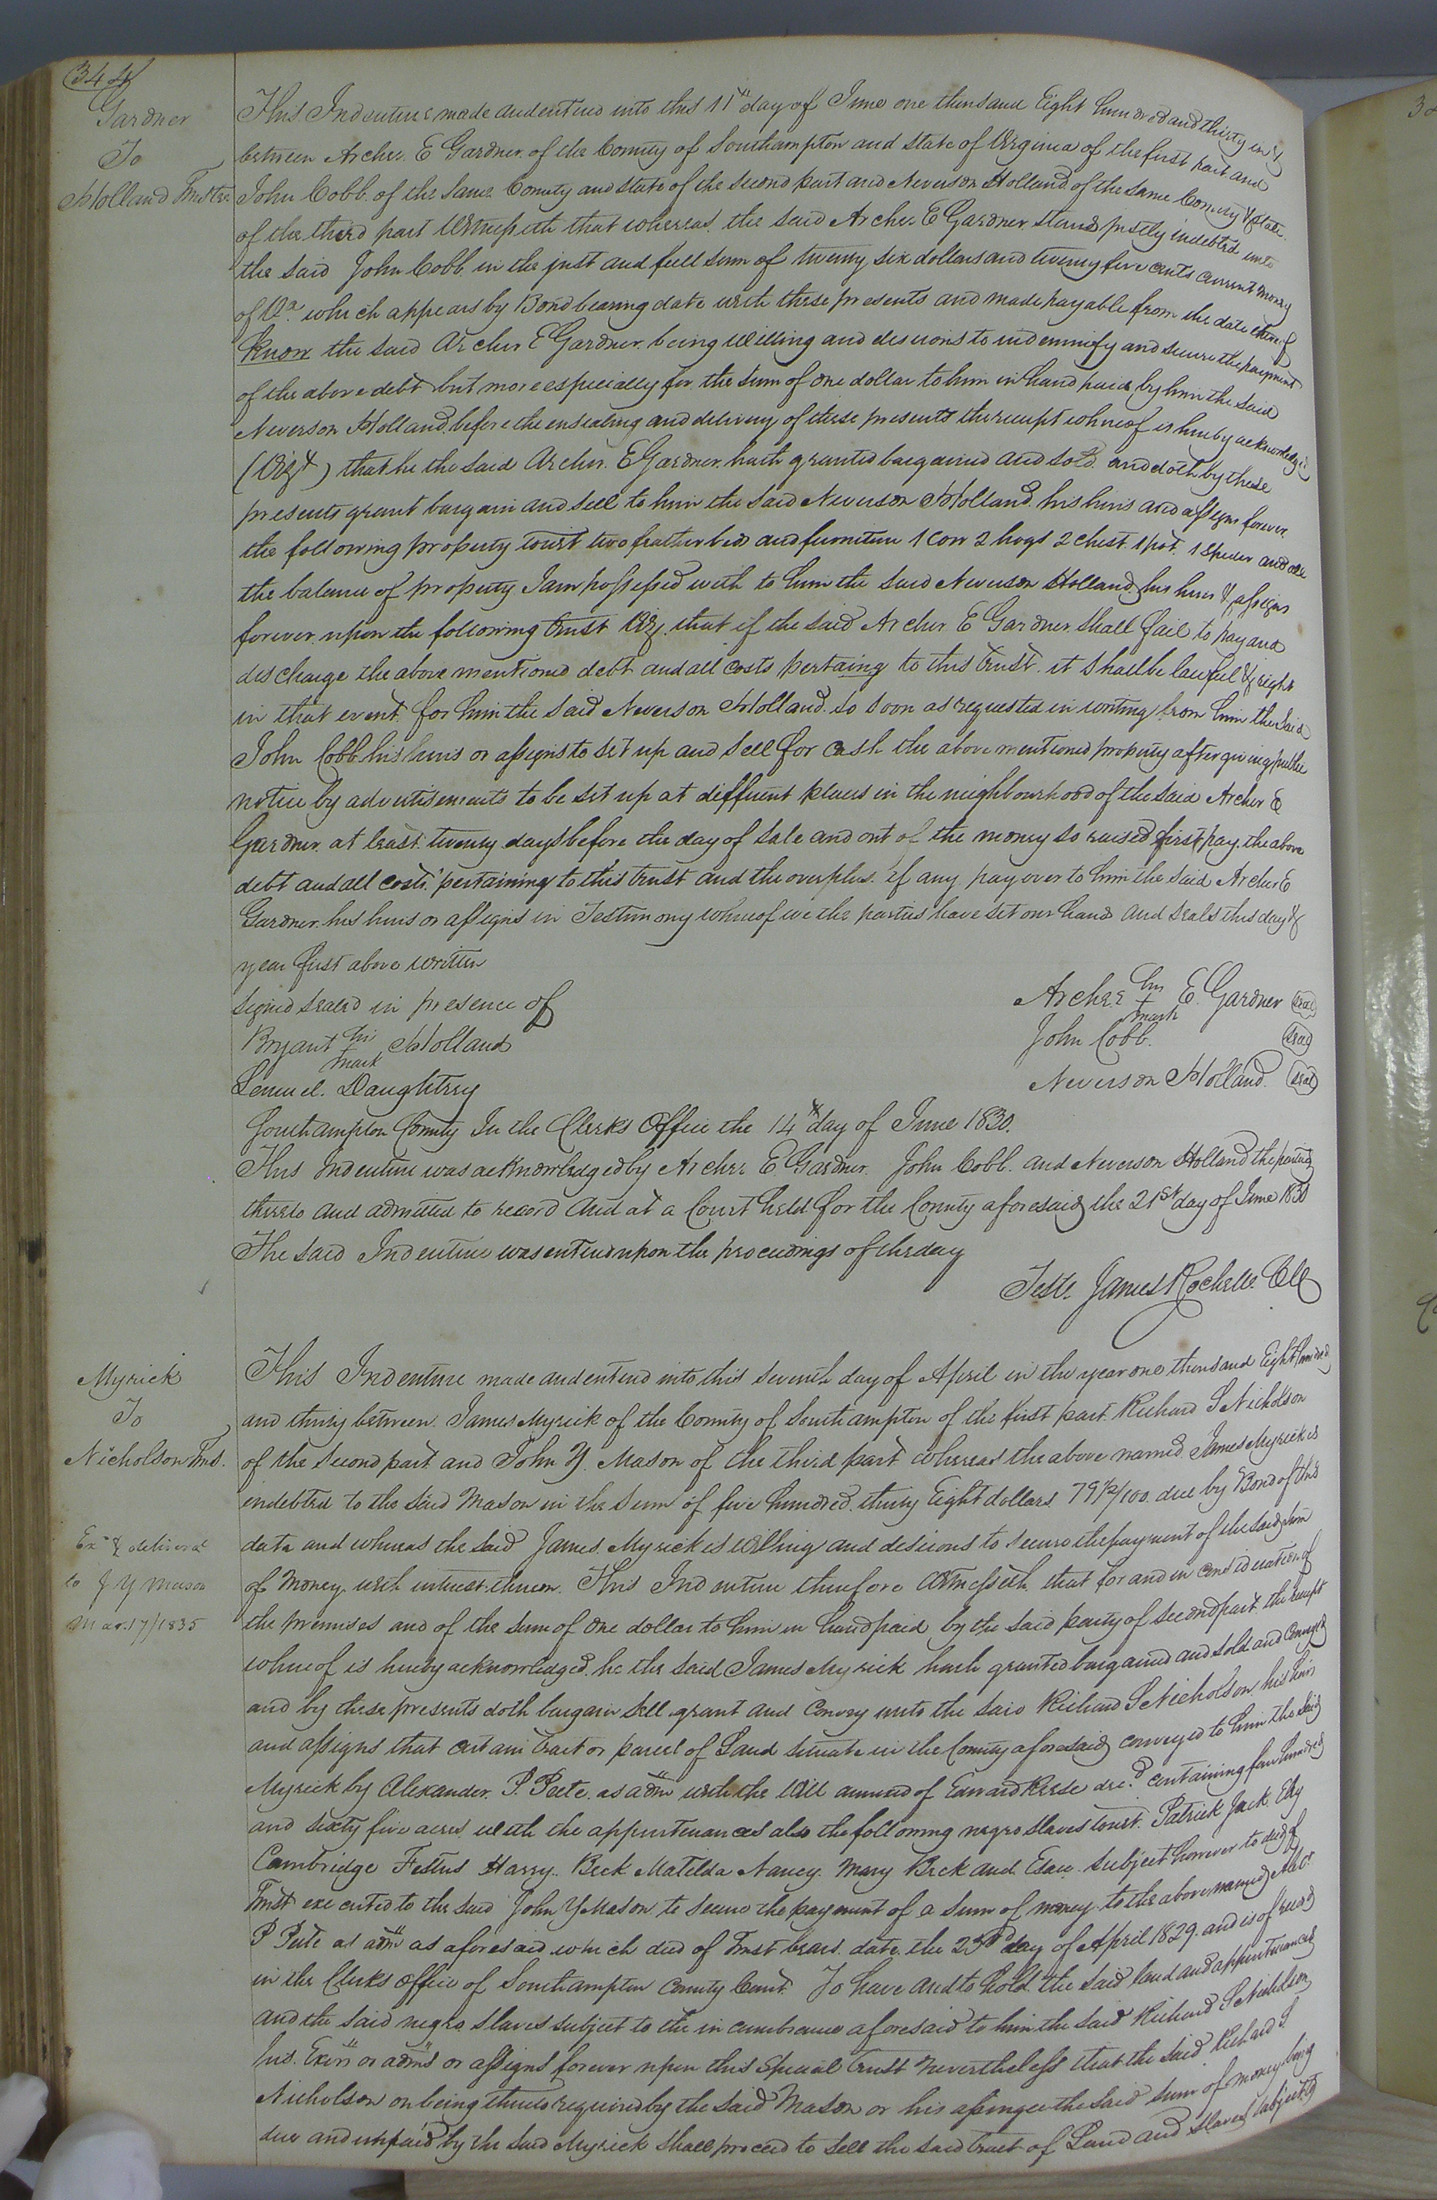 344
Gardner
To
Holland Trustee
This Indenture made and entered into this 11th day of June one thousand Eight hundred and thirty
between Archer E Gardner of the County of Southampton and State of Virginia of the first part and
John Cobb of the Same County and state of the second part and Neverson Holland of the same County & State
of the third part Witnesseth that whereas the said Archer E Gardner stands justly indebted unto
the said John Cobb in the just and full sum of twenty six dollars and twenty five cents current money
of Va. which appears by Bond bearing date with these presents and made payable from the date thereof
Know the said Archer E Gardner being Willing and desirous to indemnify and secure the payment
of the above debt but more especially for the sum of one dollar to him in hand paid by him the said
Neverson Holland before the ensealing and delivery of these presents the receipt whereof is hereby acknowledged
(Vizt) that he the said Archer E Gardner hath granted bargained and sold and doth by these
presents grant bargain and sell to him the said Neverson Holland his heirs and assigns forever
the following property towit two feather beds and furniture 1 Cow 2 hogs 2 chest 1 pot 1 Spider and all
the balance of property I am possessed with to him the said Neverson Holland his heirs & assigns
forever upon the following trust Viz that if the said Archer E Gardner shall fail to pay and
discharge the above mentioned debt and all costs pertaing to this trust it shall be lawful & right
in that event for him the said Neverson Holland so soon as requested in writing from him the said
John Cobb his heirs or assigns to set up and sell for cash the above mentioned property after giving public
notice by advertisements to be set up at different places in the neighbourhood of the said Archer E
Gardner at least twenty days before the day of sale and out of the money so raised first pay the above
debt and all costs pertaining to this trust and the overplus if any pay over to him the said Archer E
Gardner his heirs or assigns in Testimony whereof we the parties have set our hands and seals this day &
year first above written
signed sealed in presence of
Archer his E. Gardner seal
mark
Bryant his Holland
mark
John Cobb. seal
Lemuel Daughtry
Neverson Holland. seal
Southampton County In the Clerks Office the 14th day of June 1830.
This Indenture was acknowledged by Archer E Gardner John Cobb and Neverson Holland the parties
thereto and admitted to record And at a Court held for the County aforesaid the 21st day of June 1830
The said Indenture was entered upon the proceedings of the day
Teste James Rochelle Clk
Myrick
To
Nicholson Trus.
Exd & delivered
to J Y Mason
Mar 17/1835
This Indenture made and entered into this seventh day of April in the year one thousand Eight hundred
and thirty between James Myrick of the County of Southampton of the first part Richard S Nicholson
of the second part and John Y Mason of the third part whereas the above named James Myrick is
indebted to the said Mason in the sum of five hundred thirty Eight dollars 79 1/2/100 due by Bond of this
date and whereas the said James Myrick is willing and desirous to secure the payment of the said sum
of money with interest thereon This Indenture therefore Witnesseth that for and in consideration of
the premises and of the sum of one dollar to him in hand paid by the said party of second part the receipt
whereof is hereby acknowledged he the said James Myrick hath granted bargained and sold and conveyed
and by these presents doth bargain sell grant and convey unto the said Richard S Nicholson his heirs
and assigns that certain tract or parcel of Land situate in the County aforesaid conveyed to him the said
Myrick by Alexander P. Peete as adm with the Will annexed of Edward decd containing four hundred
and sixty five acres with the appurtenances also the following negro slaves towit Patrick Jack
Cambridge Festus Harry Beck Matilda Nancy Mary Beck and Esau subject however to deed of
Trust executed to the said John Y Mason to secure the payment of a sum of money to the above named
P Peete as adm as aforesaid which deed of Trust bears date the 23d day of April 1829 and is of record
in the Clerks office of Southampton County Court To have and to hold the said land and appurtenances
and the said negro slaves subject to the incumbrance aforesaid to him the said Richard S Nicholson
his Exors or adms or assigns forever upon this special trust nevertheless that the said Richard S
Nicholson on being thereto required by the said Mason or his assignee the said sum of money being
due and unpaid by the said Myrick shall proceed to sell the said tract of Land and slaves subject to